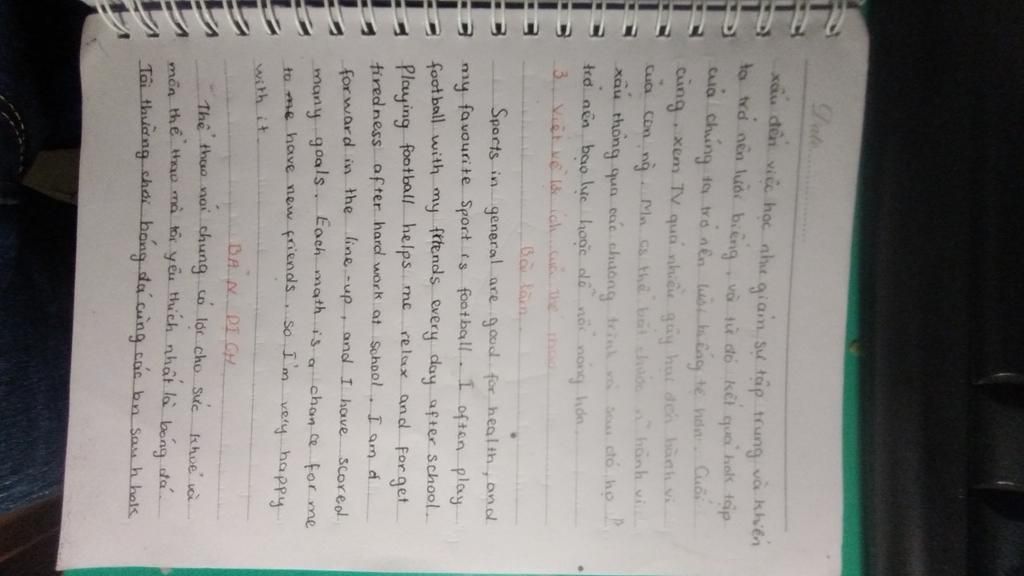 Date
xấu đến việc học như giảm sự tập trung và khiến
ta trở nên lười biếng, và từ đó kết quả hok tập
của chúng ta trở nên lười biếng tệ hơn. Cuối
cùng, xem TV quá nhiều gây hại đến hành vi
của con ng. Mn có thể bắt chước n~ hành vi
xấu thông qua các chương trình và sau đó họ
trở nên bạo lực hoặc dễ nổi nóng hơn.
3. Viết về lợi ích của thể thao
Bài làm
Sports in general are good for health, and
my favourite sport is football. I often play
football with my friends every day after school.
Playing football helps me relax and forget
tiredness after hard work at school. I am a
forward in the line-up, and I have scored
many goals. Each math is a chance for me
to have new friends, so I'm very happy
with it.
BẢN DỊCH
Thể thao nói chung có lợi cho sức khoẻ và
môn thể thao mà tôi yêu thích nhất là bóng đá.
Tôi thường chơi bóng đá cùng các bn sau h hok